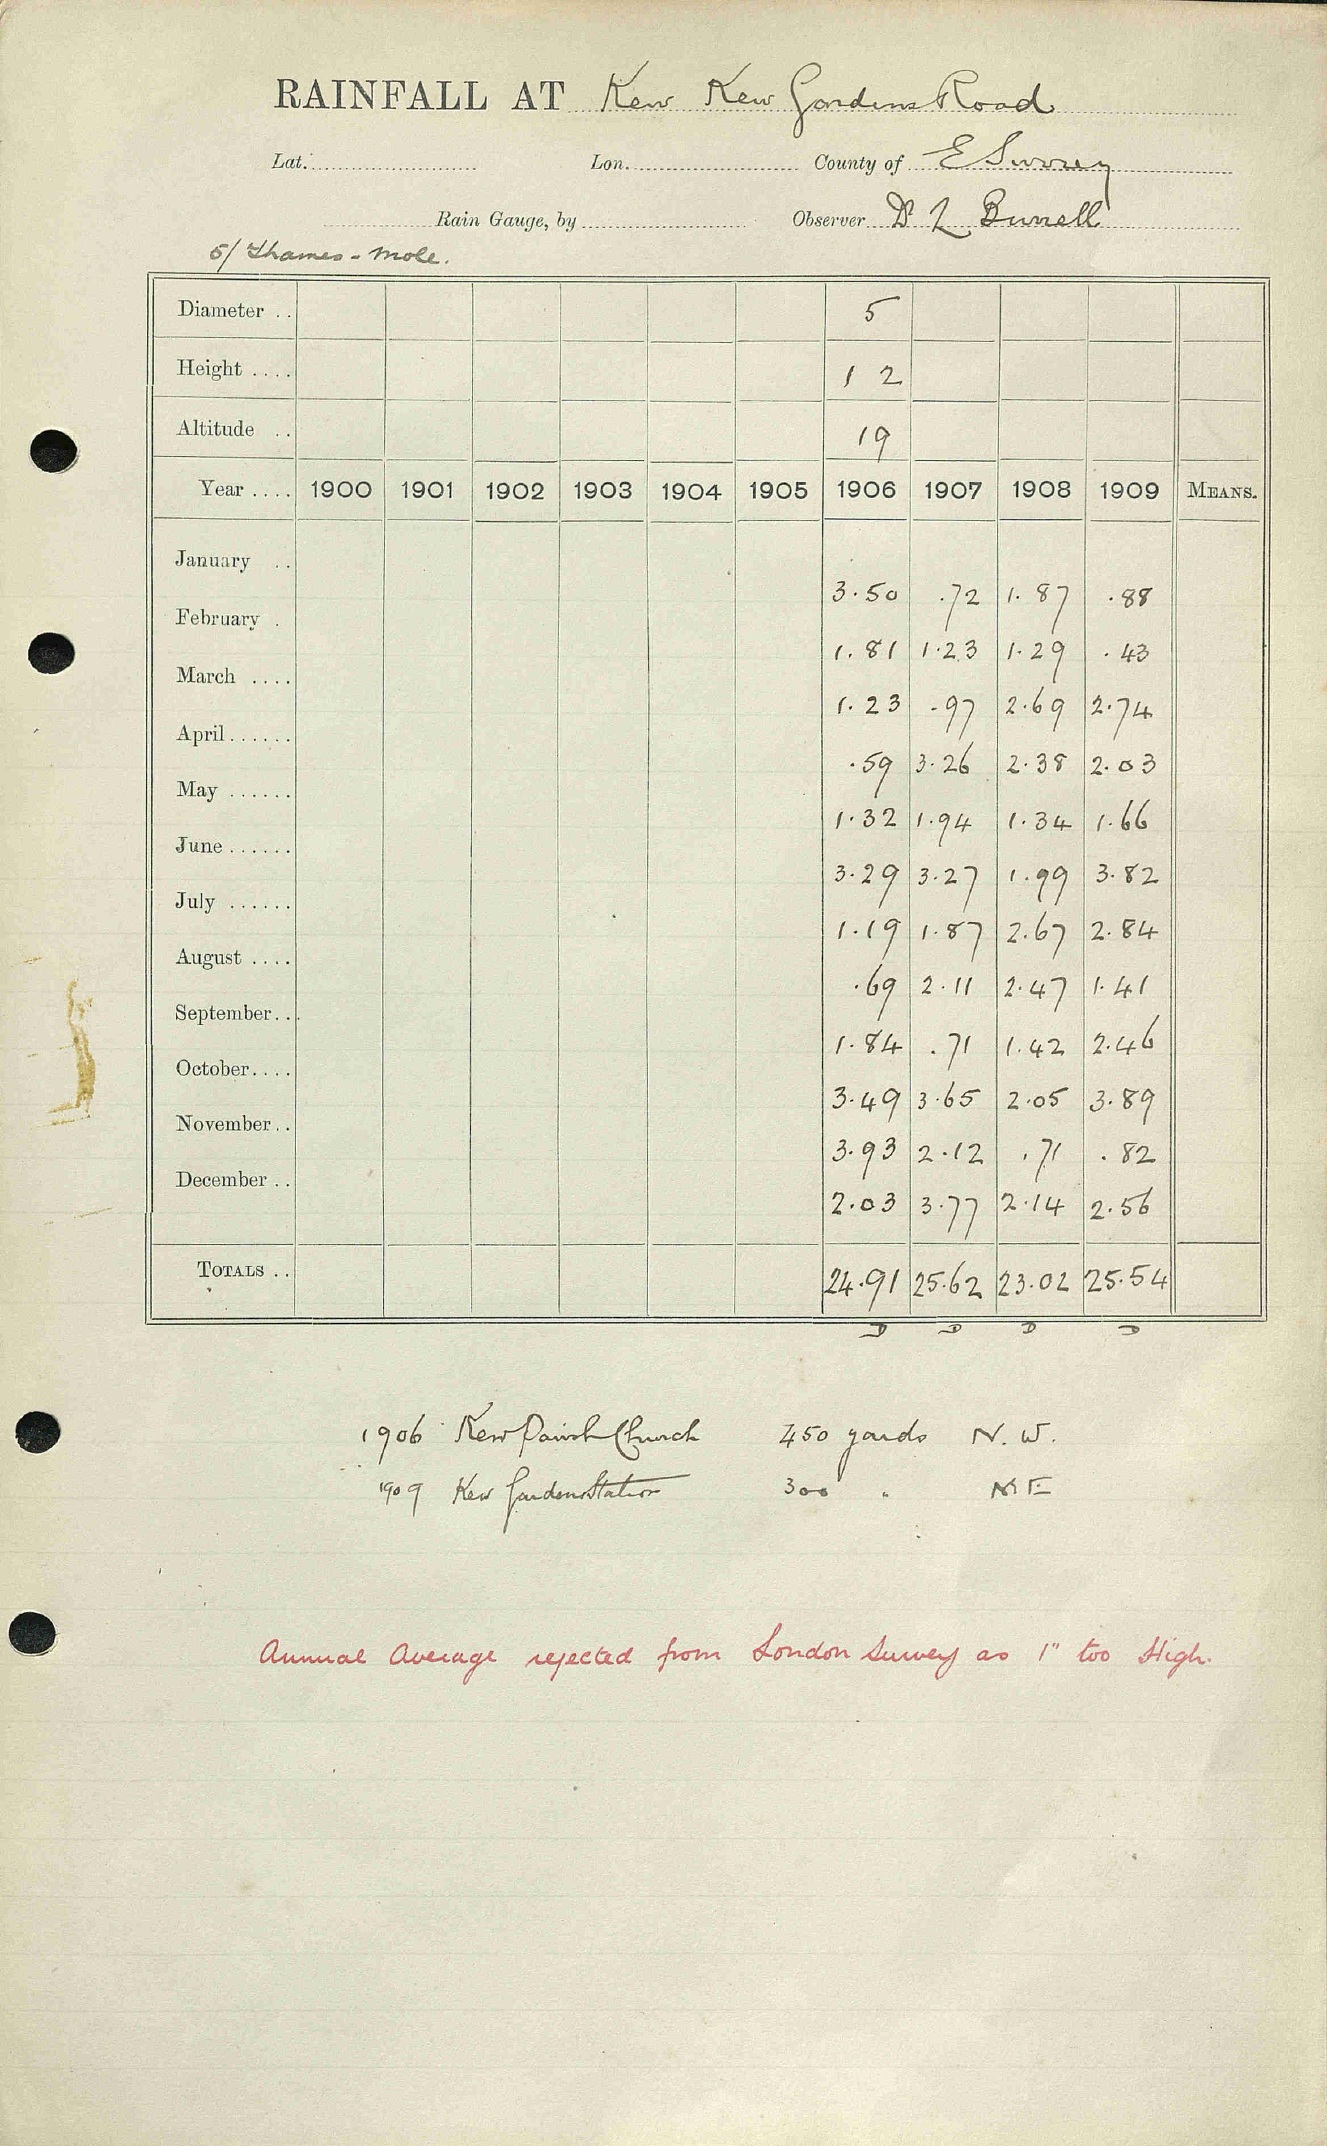 RAINFALL AT Kew Kew Gardens Road
Lat. Lon. County of E Surrey
Rain Gauge, by Observer Dr L Burrell
5/ Thames - Mole.
Diameter .. 5
Height .... 1 2
Altitude .. 19
Year .... 1900 1901 1902 1903 1904 1905 1906 1907 1908 1909 MEANS.
January .. 3.50 .72 1.87 .88
February . 1.81 1.23 1.29 .43
March .... 1.23 .97 2.69 2.74
April...... .59 3.26 2.38 2.03
May ...... 1.32 1.94 1.34 1.66
June...... 3.29 3.27 1.99 3.82
July ...... 1.19 1.87 2.67 2.84
August .... .69 2.11 2.47 1.41
September... 1.84 .71 1.42 2.46
October.... 3.49 3.65 2.05 3.89
November.. 3.93 2.12 .71 .82
December .. 2.03 3.77 2.14 2.56
TOTALS .. 24.91 25.62 23.02 25.54
D D D D
1906 Kew Parish Church 450 yards N. W.
1909 Kew Gardens Station 300 " NE
Annual Average rejected from London Survey as 1" too High.